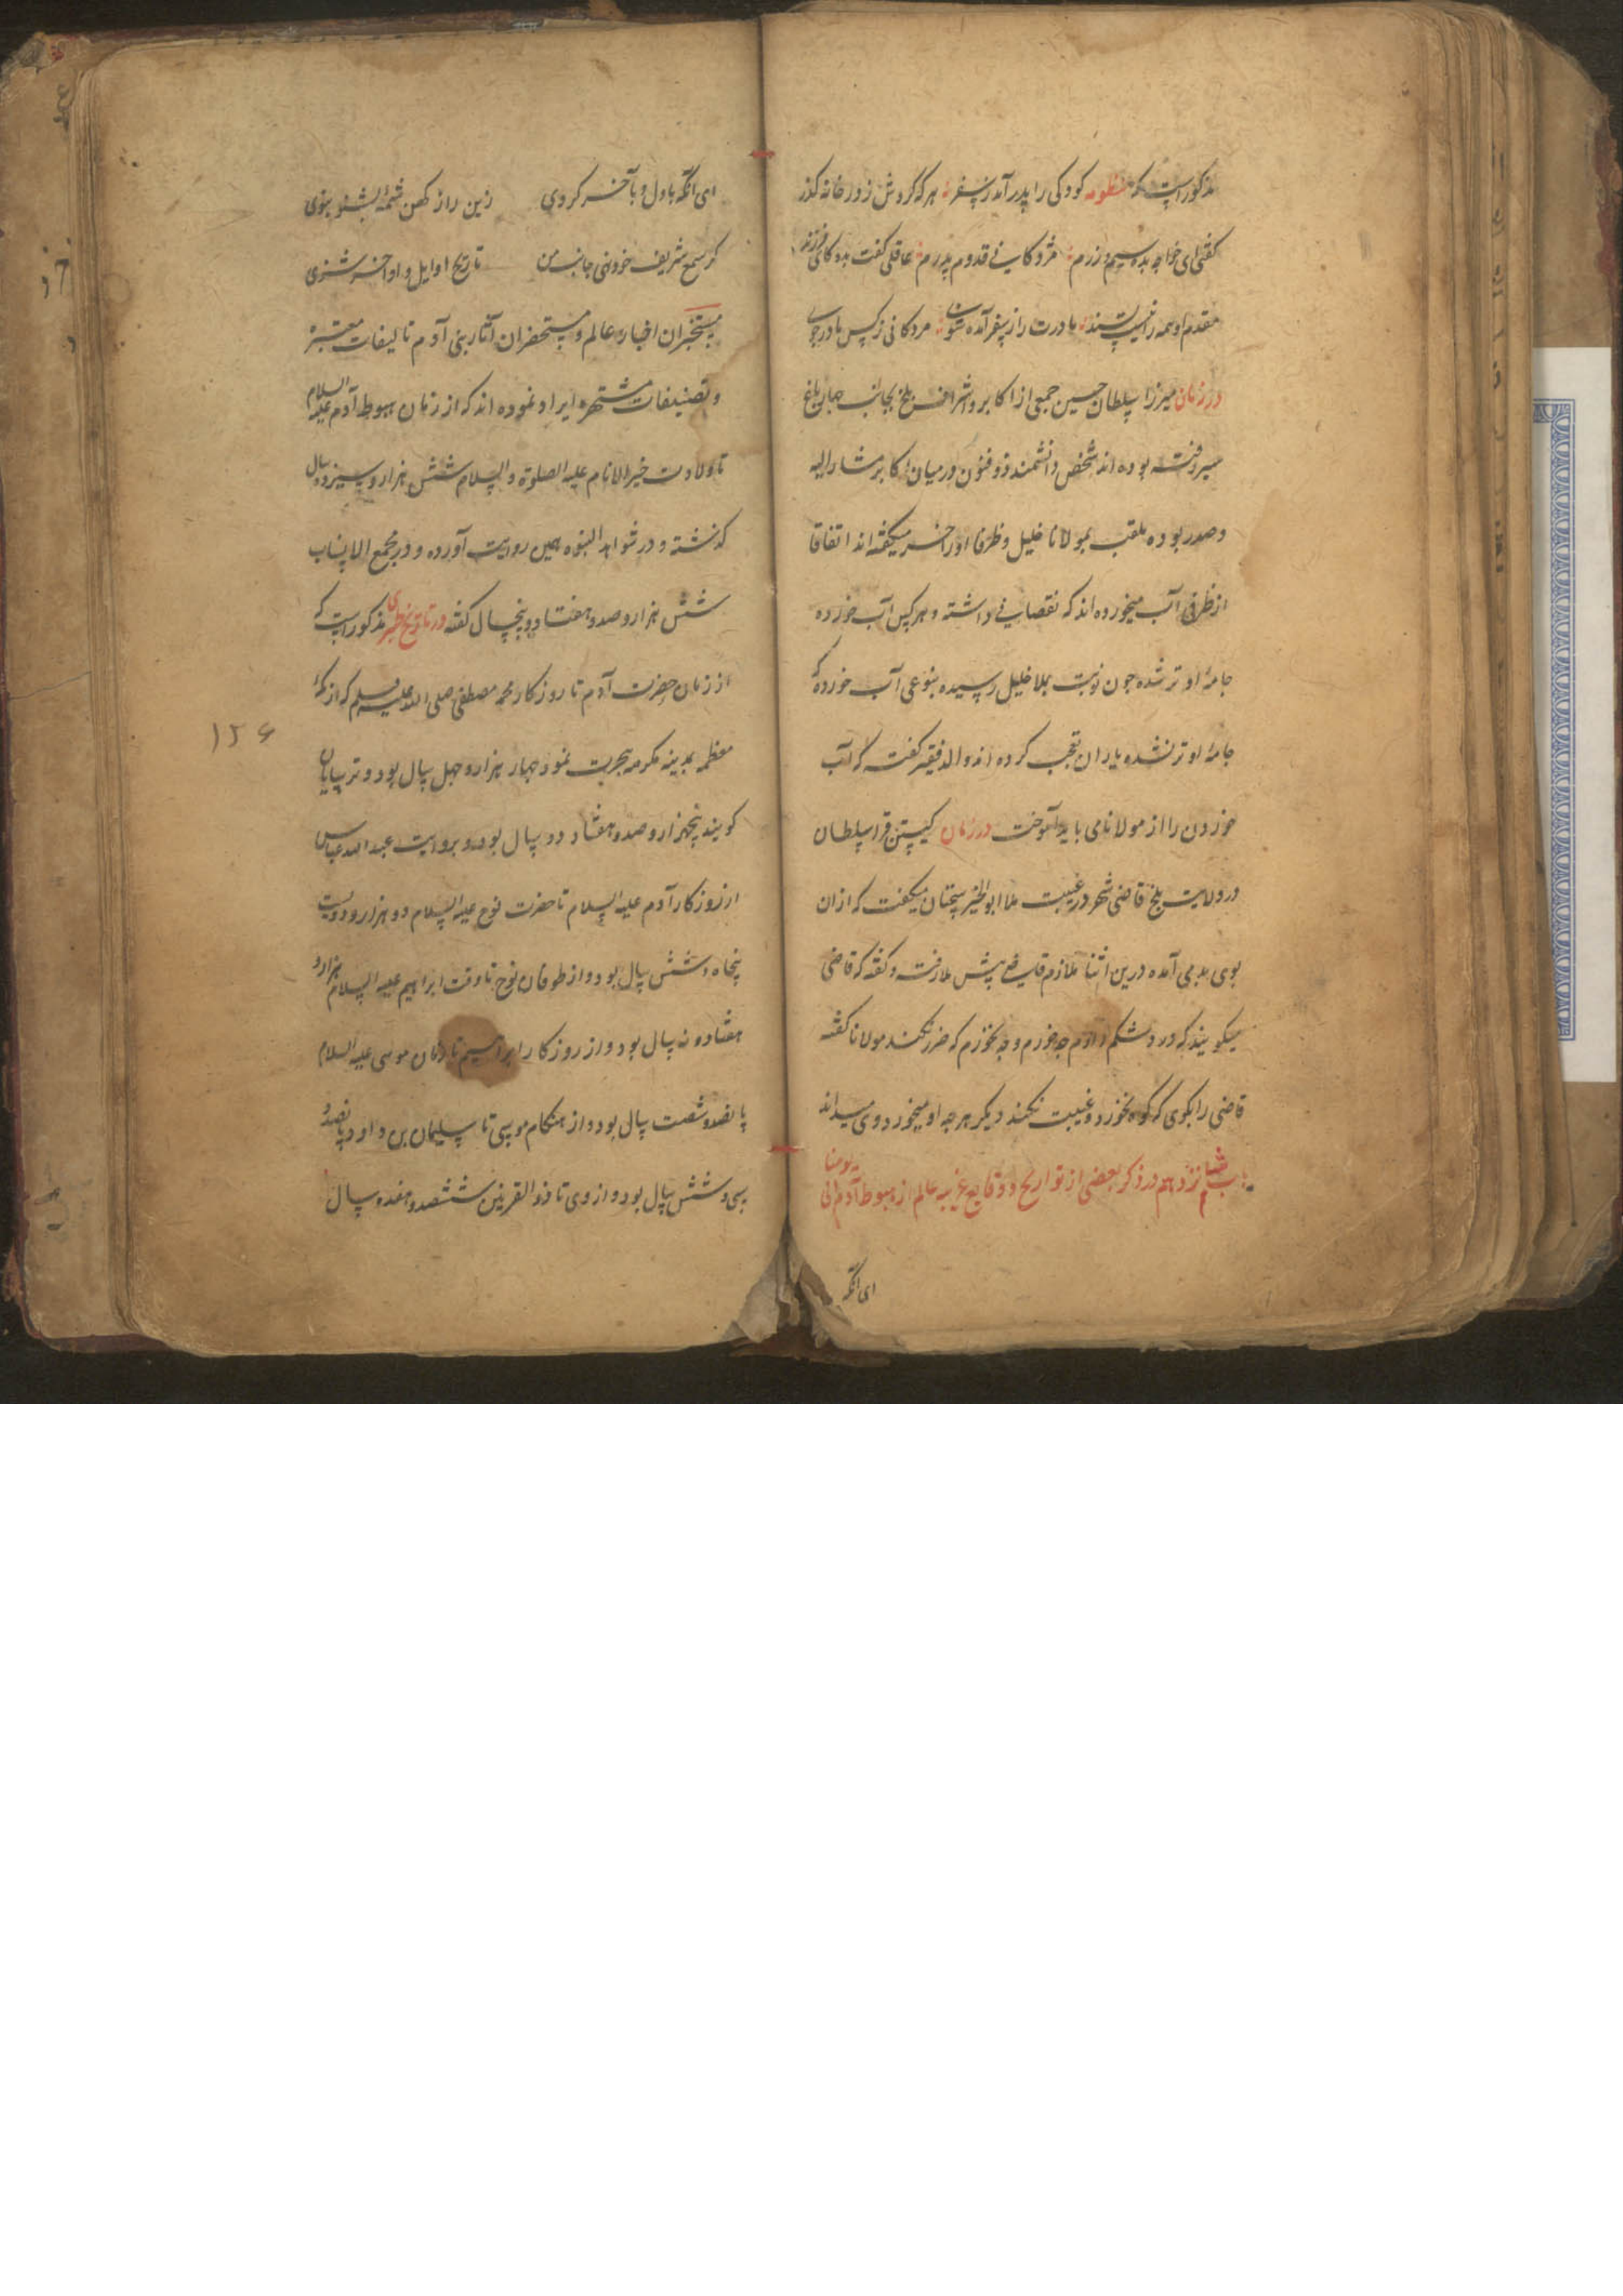 مذکور است که منظومه کودکی را پدر آمد ز سفر هر که کردش ز در خانه گذر
گفتی ای خواجه بده سیم و زرم مژدگانی قدوم پدرم عاقلی گفت بده کای فرزند
مقدم او همه را نیست پسند مادرت را ز سفر آمده شوی مژدگانی ز کس مادر جوی
در زمان میرزا سلطان حسین جمعی از اکابر و اشراف بلخ بجانب جهان باغ
میرفته بوده اند شخص دانشمند ذوفنون در میان اکابر مشار الیه
و صدر بوده ملقب بمولانا خلیل و ظرفا او را خر میگفته اند اتفاقا
از ظرفی آب میخورده اند که نقصانی داشته و هر کس آب خورده
جامهٔ او تر شده چون نوبت بملا خلیل رسیده بنوعی آب خورده که
جامهٔ او تر نشده یاران تعجب کرده اند والد فقیر گفت که آب
خوردن را از مولانا می باید آموخت در زمان کیستن قرا سلطان
در ولایت بلخ قاضی شهر در غیبت ملا ابوالخیر سخنان میگفت که ازان
بوی بد می آمده درین اثنا ملازم قاضی پیش ملا رفت و گفته که قاضی
میگویند که درد شکم دارم چه خورم و چه نخورم که ضرر نکند مولانا گفته
قاضی را بگوی که گوه نخورد و غیبت نکند دیگر هر چه او میخورد وی میداند
باب شانزدهم در ذکر بعضی از تواریخ و وقایع غریبه عالم از هبوط آدم الی یومنا
ای آنکه
ای آنکه باول و بآخر گروی زین راز کهن شمهٔ بشنو بنوی
گر سمع شریف خود نهی جانب من تاریخ اوایل و اواخر شنوی
مستخبران اخبار عالم و مستحضران آثار بنی آدم تالیفات معتبره
و تصنیفات مشتهره ایراد نموده اند که از زمان هبوط آدم علیه السلام
تا ولادت خیر الانام علیه الصلوة و السلام شش هزار و سیزده سال
گذشته و در شواهد النبوه همین روایت آورده و در مجمع الانساب
شش هزار و صد و هفتاد و پنجسال گفته در تاریخ طبری مذکور است که
از زمان حضرت آدم تا روزگار محمد مصطفی صلی الله علیه وسلم که از مکهٔ
معظمه بمدینه مکرمه هجرت نمود چهار هزار و چهل سال بود و ترسایان
گویند پنجهزار و صد و هفتاد دو سال بود و بروایت عبد الله عباس
از روزگار آدم علیه السلام تا حضرت نوح علیه السلام دو هزار و دویست
پنجاه و شش سال بود و از طوفان نوح تا وقت ابراهیم علیه السلام هزار و
هفتاد و نه سال بود و از روزگار ابراهیم تا زمان موسی علیه السلام
پانصد و شصت سال بود و از هنگام موسی تا سلیمان بن داود پانصد و
سی و شش سال بود و از وی تا ذو القرنین ششصد و هفده سال
۱۲۶